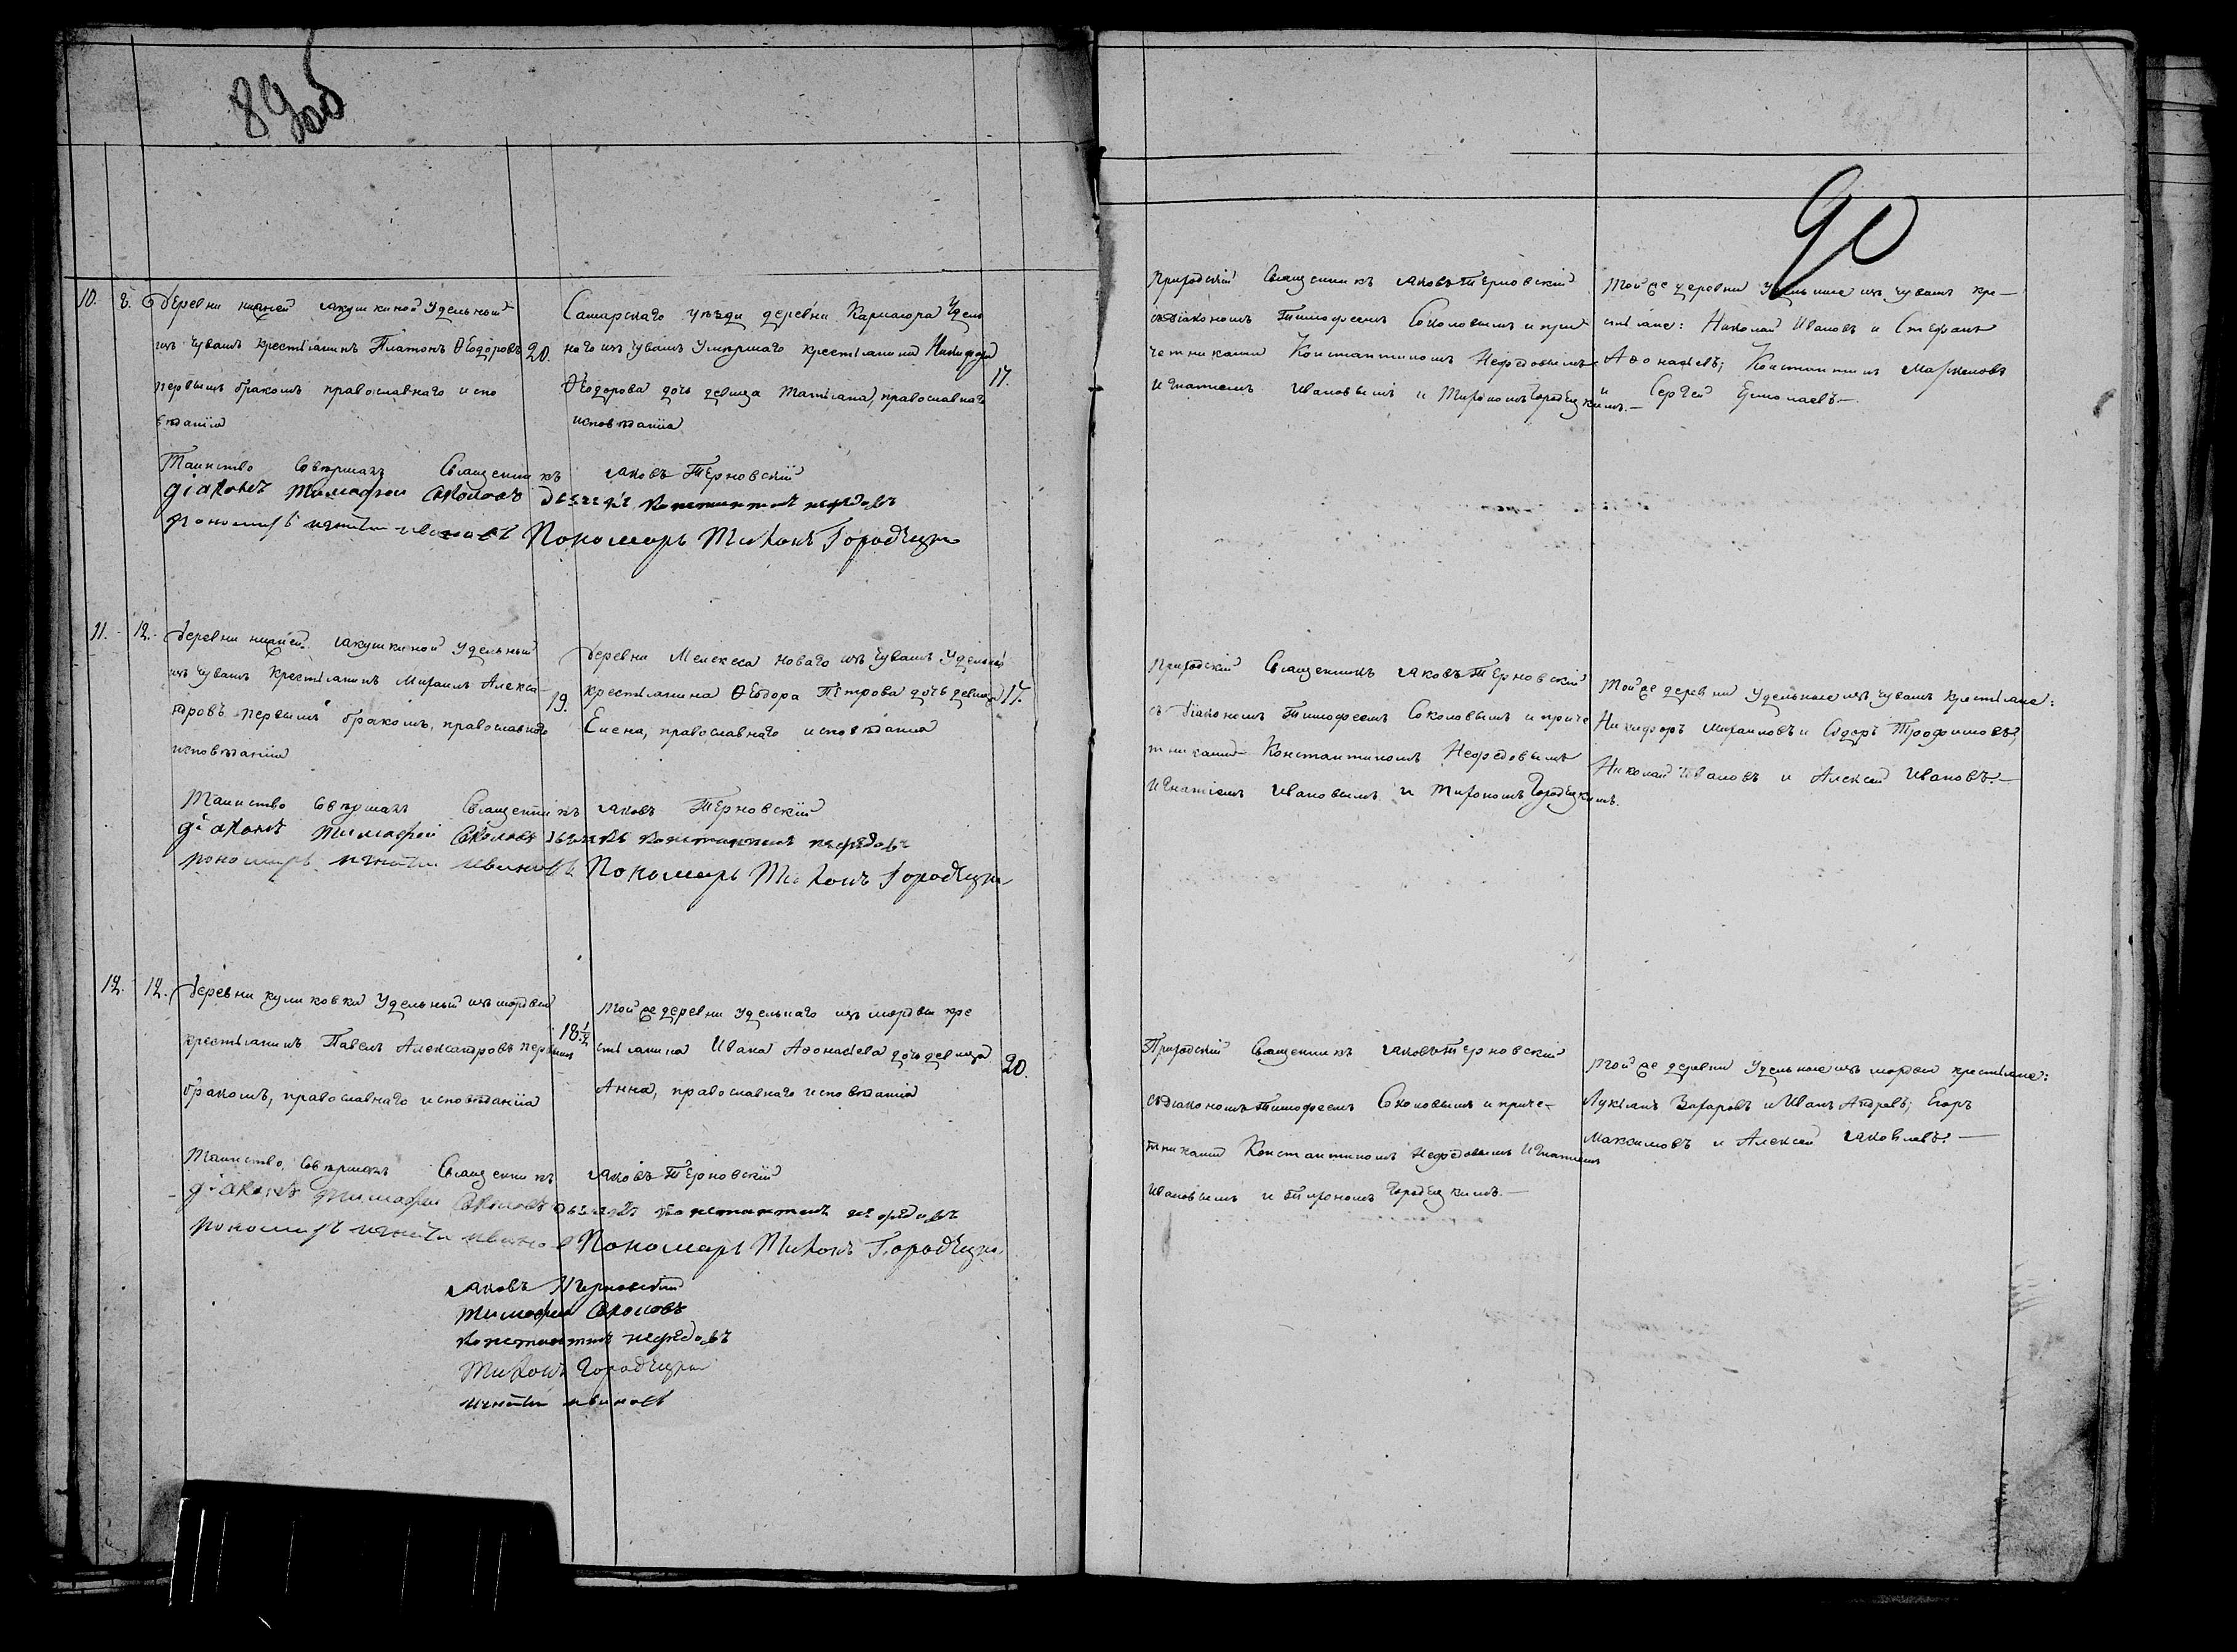 89 об
10. 8. Деревни нижней Якушкиной Удельный
изъ чувашъ крестьянинъ Платонъ Ѳеодоровъ 20.
первымъ бракомъ православнаго испо
вѣданія
Самарскаго уѣзда деревни Кармалора Удѣль
наго изъ чувашъ Умершаго крестьянина Никифора
Ѳеодорова дочь девица Татіана, православнаго 17.
исповѣданія
Таинство Совершалъ Священникъ Іаковъ Терновскій
діаконъ Тимофей Соколовъ дьячекъ Константинъ Нефедовъ
пономарь Игнатій Ивановъ Пономарь Тихонъ Городецкій
11. 12. Деревни нижней Якушкиной Удельный
изъ чувашъ Крестьянинъ Михаилъ Алекса- 19.
ндровъ первымъ бракомъ, православнаго
исповѣданія
Деревни Мелекеса новаго изъ чувашъ Удельнаго
крестьянина Ѳеодора Петрова дочь девица 17.
Елена, православнаго исповѣданія
Таинство Совершалъ Священникъ Іаковъ Терновскій
діаконъ Тимофей Соколовъ дьячекъ Константинъ Нефедовъ
пономарь Игнатій Ивановъ Пономарь Тихонъ Городецкій
12. 12. Деревни куликовки Удельный изъ мордвы
крестьянинъ Павелъ Александровъ первымъ 18 1/2
бракомъ, православнаго исповѣданія
Той же деревни удельнаго изъ мордвы кре
стьянина Ивана Аѳонасьева дочь девица 20.
Анна, православнаго исповѣданія
Таинство Совершалъ Священникъ Іаковъ Терновскій
діаконъ Тимофей Соколовъ дьячекъ Константинъ Нефедовъ
пономарь Игнатій Ивановъ Пономарь Тихонъ Городецкій
Іаковъ Терновскій
Тимофей Соколовъ
Константинъ Нефедовъ
Тихонъ Городецкій
Игнатій Ивановъ
90
Приходскій Священникъ Іаковъ Терновскій
съ Діакономъ Тимофеемъ Соколовымъ и при
четниками Константиномъ Нефедовымъ
Игнатіемъ Ивановымъ и Тихономъ Городецкимъ.—
Той же деревни Удельные изъ чувашъ кре—
стьяне: Николай Ивановъ и Стефанъ
Аѳонасьевъ; Константинъ Маркеловъ
и Сергей Ермолаевъ.—
Приходскій Священникъ Іаковъ Терновскій
съ Діакономъ Тимофеемъ Соколовымъ и приче
тниками Константиномъ Нефедовымъ
Игнатіемъ Ивановымъ и Тихономъ Городецкимъ.
Той же деревни Удельные изъ чувашъ крестьяне:
Никифоръ Михаиловъ и Сидоръ Трофимовъ;
Николай Ивановъ и Алексей Ивановъ.—
Приходскій Священникъ Іаковъ Терновскій
съ Діакономъ Тимофеемъ Соколовымъ и приче-
тниками Константиномъ Нефедовымъ Игнатіемъ
Ивановымъ и Тихономъ Городецкимъ.—
Той же деревни Удельные изъ мордвы крестьяне:
Лукіанъ Захаровъ и Иванъ Андревъ; Егоръ
Максимовъ и Алексей Іаковлевъ.—